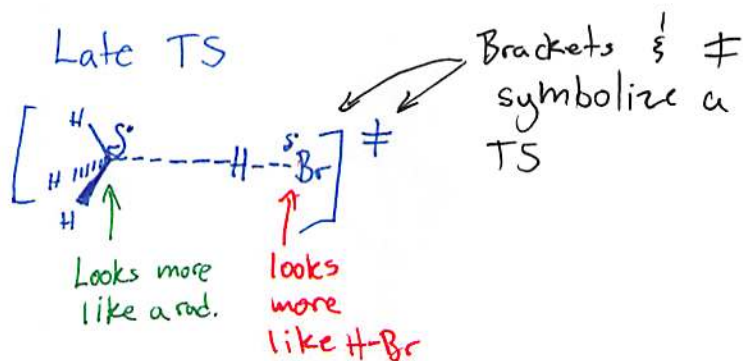 Late TS
Brackets & ‡
symbolize a
TS
[ H H H δ• -----H---δ•Br ] ‡
Looks more
like a rad.
looks
more
like H-Br